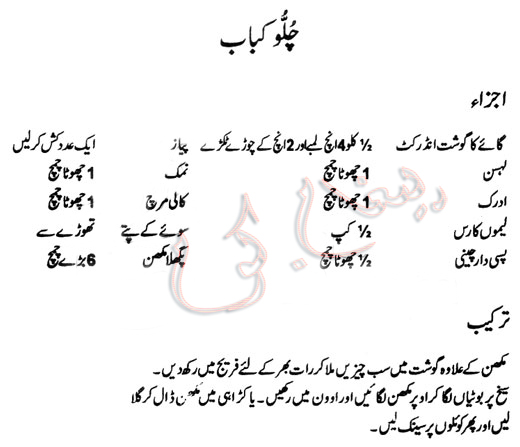 چُلّو کباب
اجزاء
گائے کا گوشت انڈر کٹ ½ کلو 4 انچ لمبے اور 2 انچ کے چوڑے ٹکڑے پیاز ایک عدد کش کر لیں
لہسن 1 چھوٹا چمچ نمک 1 چھوٹا چمچ
ادرک 1 چھوٹا چمچ کالی مرچ 1 چھوٹا چمچ
لیموں کا رس ½ کپ سوئے کے پتے تھوڑے سے
پسی دار چینی ½ چھوٹا چمچ پگھلا مکھن 6 بڑے چمچ
ترکیب
مکھن کے علاوہ گوشت میں سب چیزیں ملا کر رات بھر کے لئے فریج میں رکھ دیں۔
سیخ پر بوٹیاں لگا کر اوپر مکھن لگائیں اور اوون میں رکھیں۔ یا کڑاہی میں مکھن ڈال کر گلا
لیں اور پھر کوئلوں پر سینک لیں۔